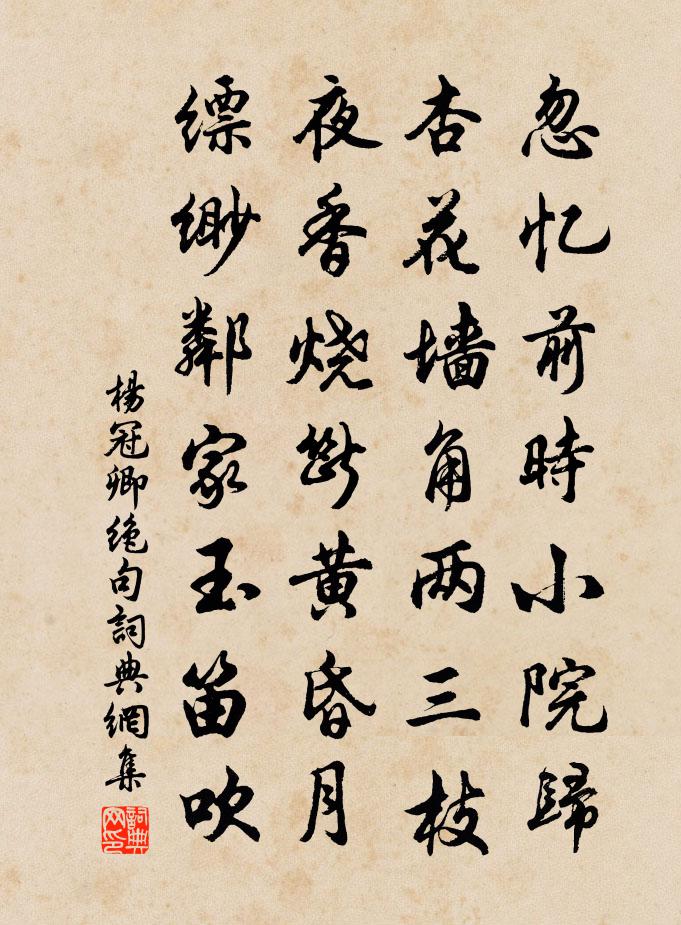 忽忆前時小院歸
杏花墙角两三枝
夜香烧断黄昏月
缥缈鄰家玉笛吹
楊冠卿绝句詞典網集
詞典网印